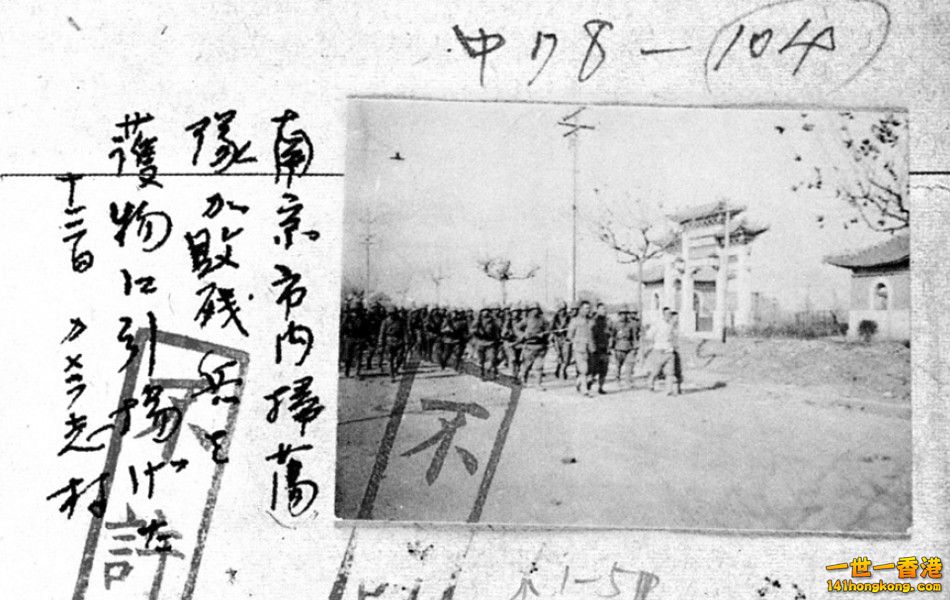 中178-104
南京市内掃蕩
隊が敗残兵を
獲物に引揚げた
志村
不許
不
一世一香港
141hongkong.com